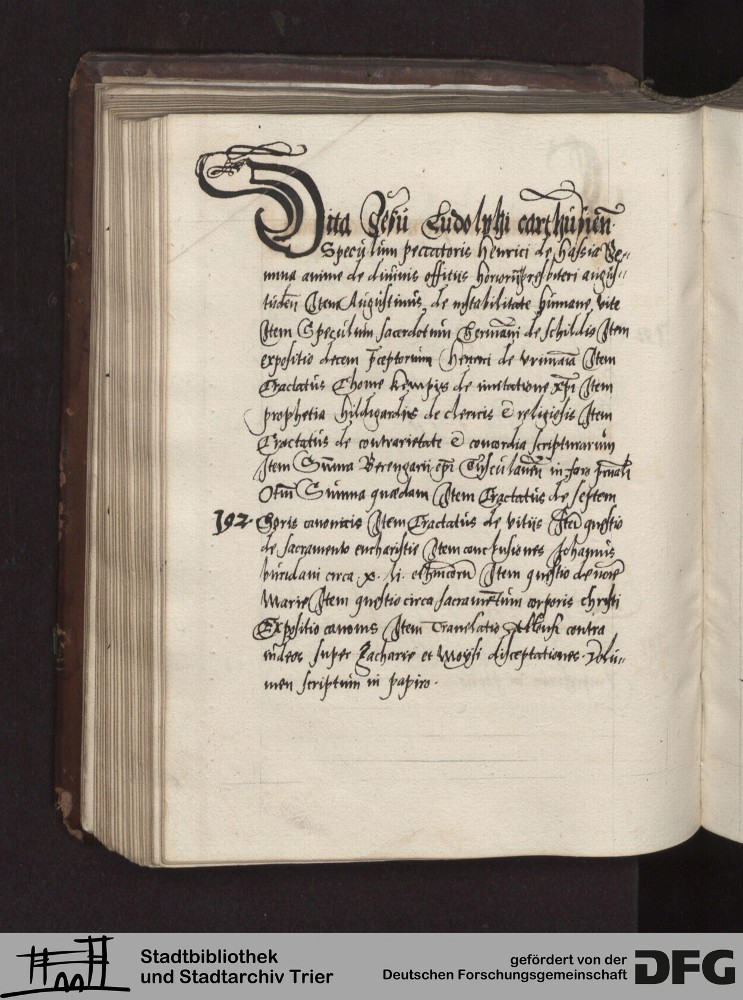 Vita Jesu Ludolphi carthusien̄.
Speculum peccatoris Henrici de hassia Ge-
mma anime de diuinis officijs honorij presbiteri augus-
tuden̄ Item Augustinus de instabilitate humane vite
Item Speculum sacerdotum Hermanni de schildis Item
expositio decem p̄ceptorum Henrici de vrimaia Item
Tractatus Thome Kempis de imitatione xp̄i Item
prophetia hildigardis de clericis & religiosis Item
Tractatus de contrarietate & concordia scripturarum
Item Sum̄a Berengarii ep̄i Tusculan̄ in foro
Summa quaedam Item Tractatus de septem
192 horis canonicis Item Tractatus de vitijs Itē questio
de sacramento eucharistie Item conclusiones Johannis
buridani circa .x. li. ethicorū Item questio de
Marie Item questio circa sacramentum corporis christi
Expositio canonis Item Translatio contra
iudeos super Zacharie et Moysi disceptationes. Volu-
men scriptum in papiro.
Stadtbibliothek
und Stadtarchiv Trier
gefördert von der
Deutschen Forschungsgemeinschaft
DFG